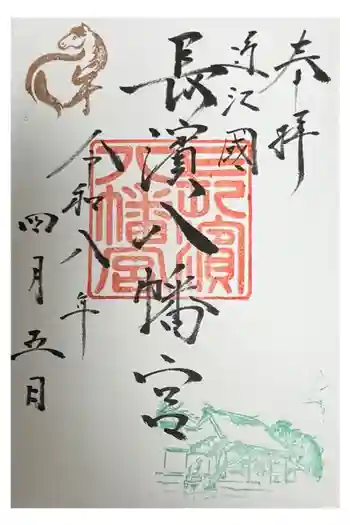 奉拝
近江國
長濱八幡宮
令和八年
四月五日
長濱
八幡宮
午